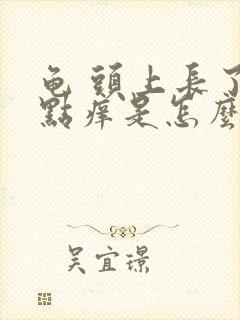 龟頭上長了
點痒是怎麼
吴宜璟